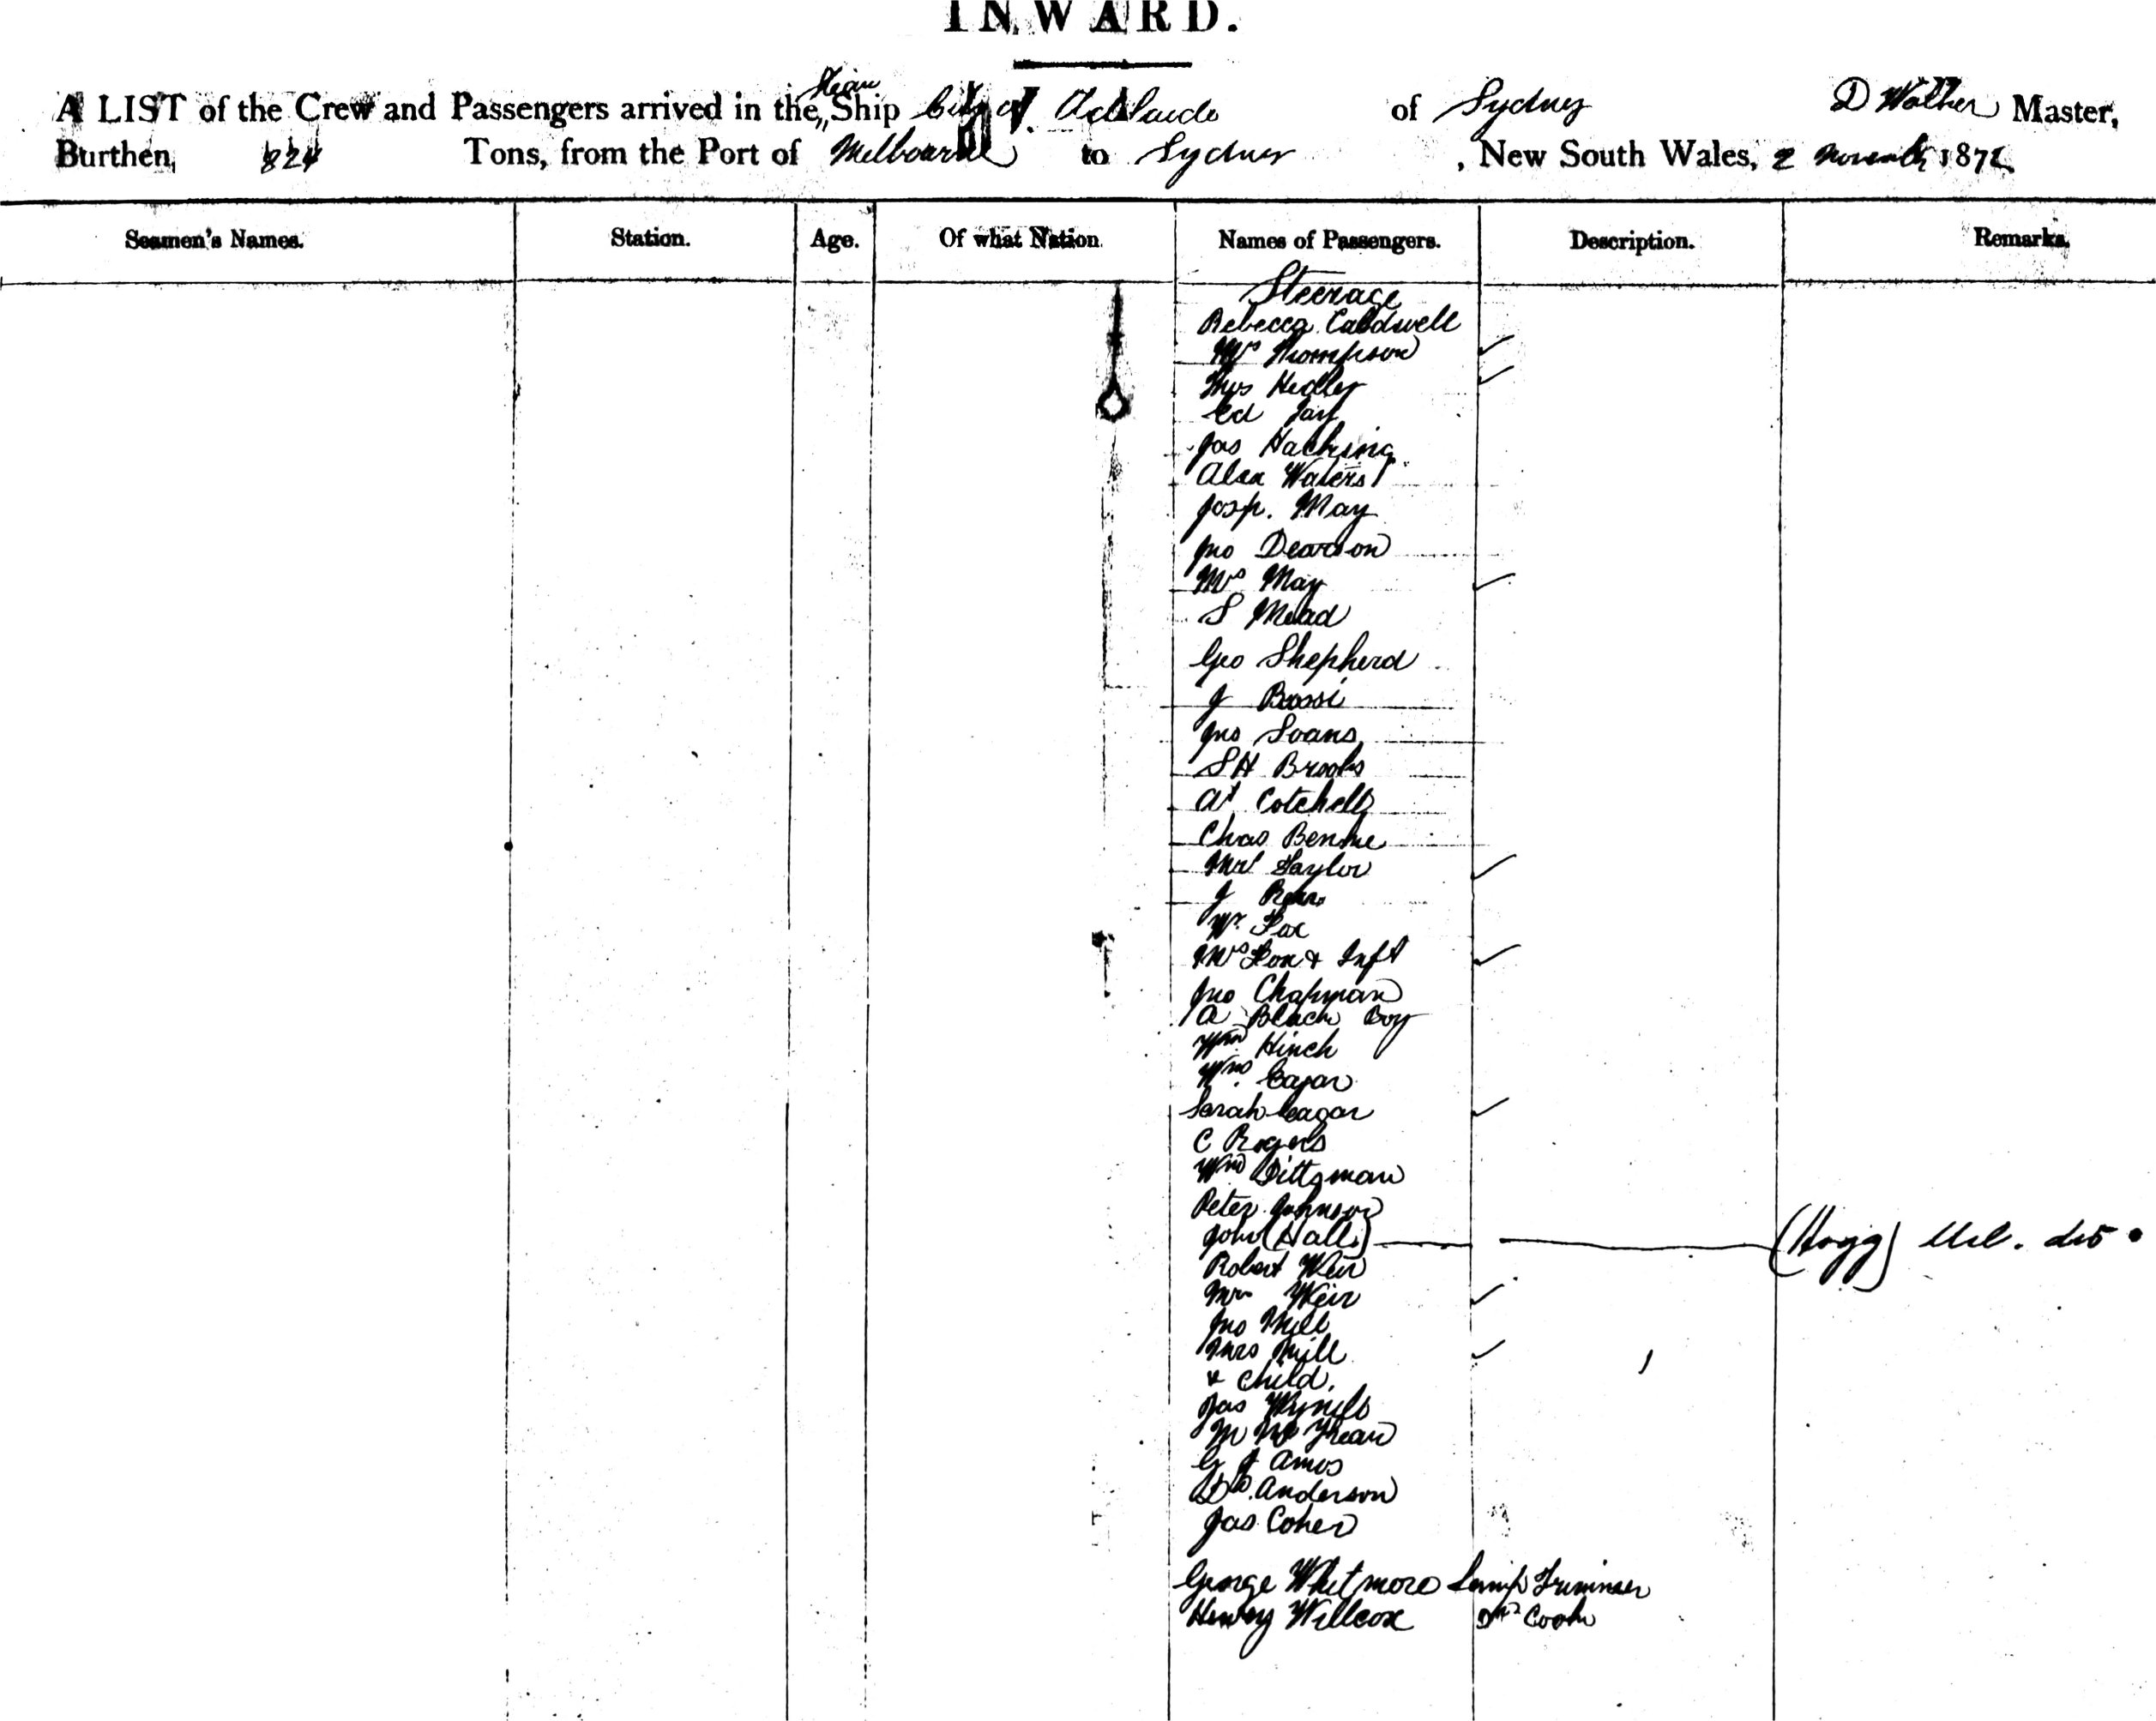 INWARD.
A LIST of the Crew and Passengers arrived in the Steam Ship City of Adelaide of Sydney D Walker Master,
Burthen, 824 Tons, from the Port of Melbourne to Sydney , New South Wales, 2 November 1872
Seamen's Names. Station. Age. Of what Nation Names of Passengers. Description. Remarks.
Steerage
Rebecca Caldwell
Mrs Thompson
Mrs Hedley
Ed Jay
Jas
Alex Waters
Josp. May
Jno Dearson
Mrs May
S Mead
Geo Shepherd
J Bossi
Jno Soans
S H Brooks
At Cotchell
Chas
Mrs Taylor
J
Wm Fox
Mrs Fox & Inft
Jno Chapman
A Black Boy
Wm Hinch
Wm Eagar
Sarah Eagar
C Rogers
Wm Dittsman
Peter Johnson
John (Hall) (Hogg)
Robert Weir
Mrs Weir
Jno Mill
Mrs Mill
& child.
Jas
M
G J Amos
D. Anderson
Jas Cohen
George Whitmore Lamp Trimmer
Henry Willcox Cook